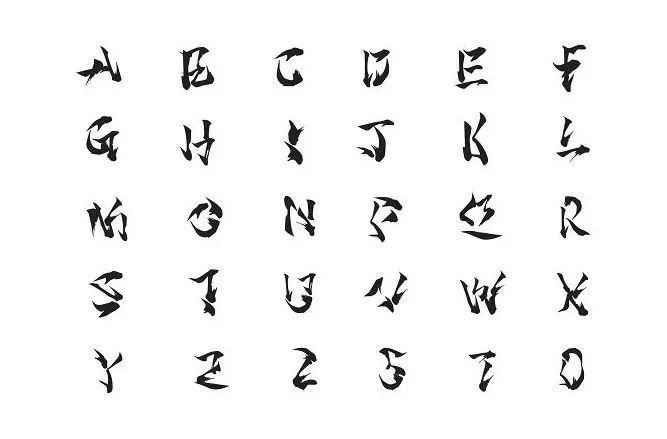 A B C D E F
G H I J K L
M O N P Q R
S T U V W X
Y Z 2 5 7 0